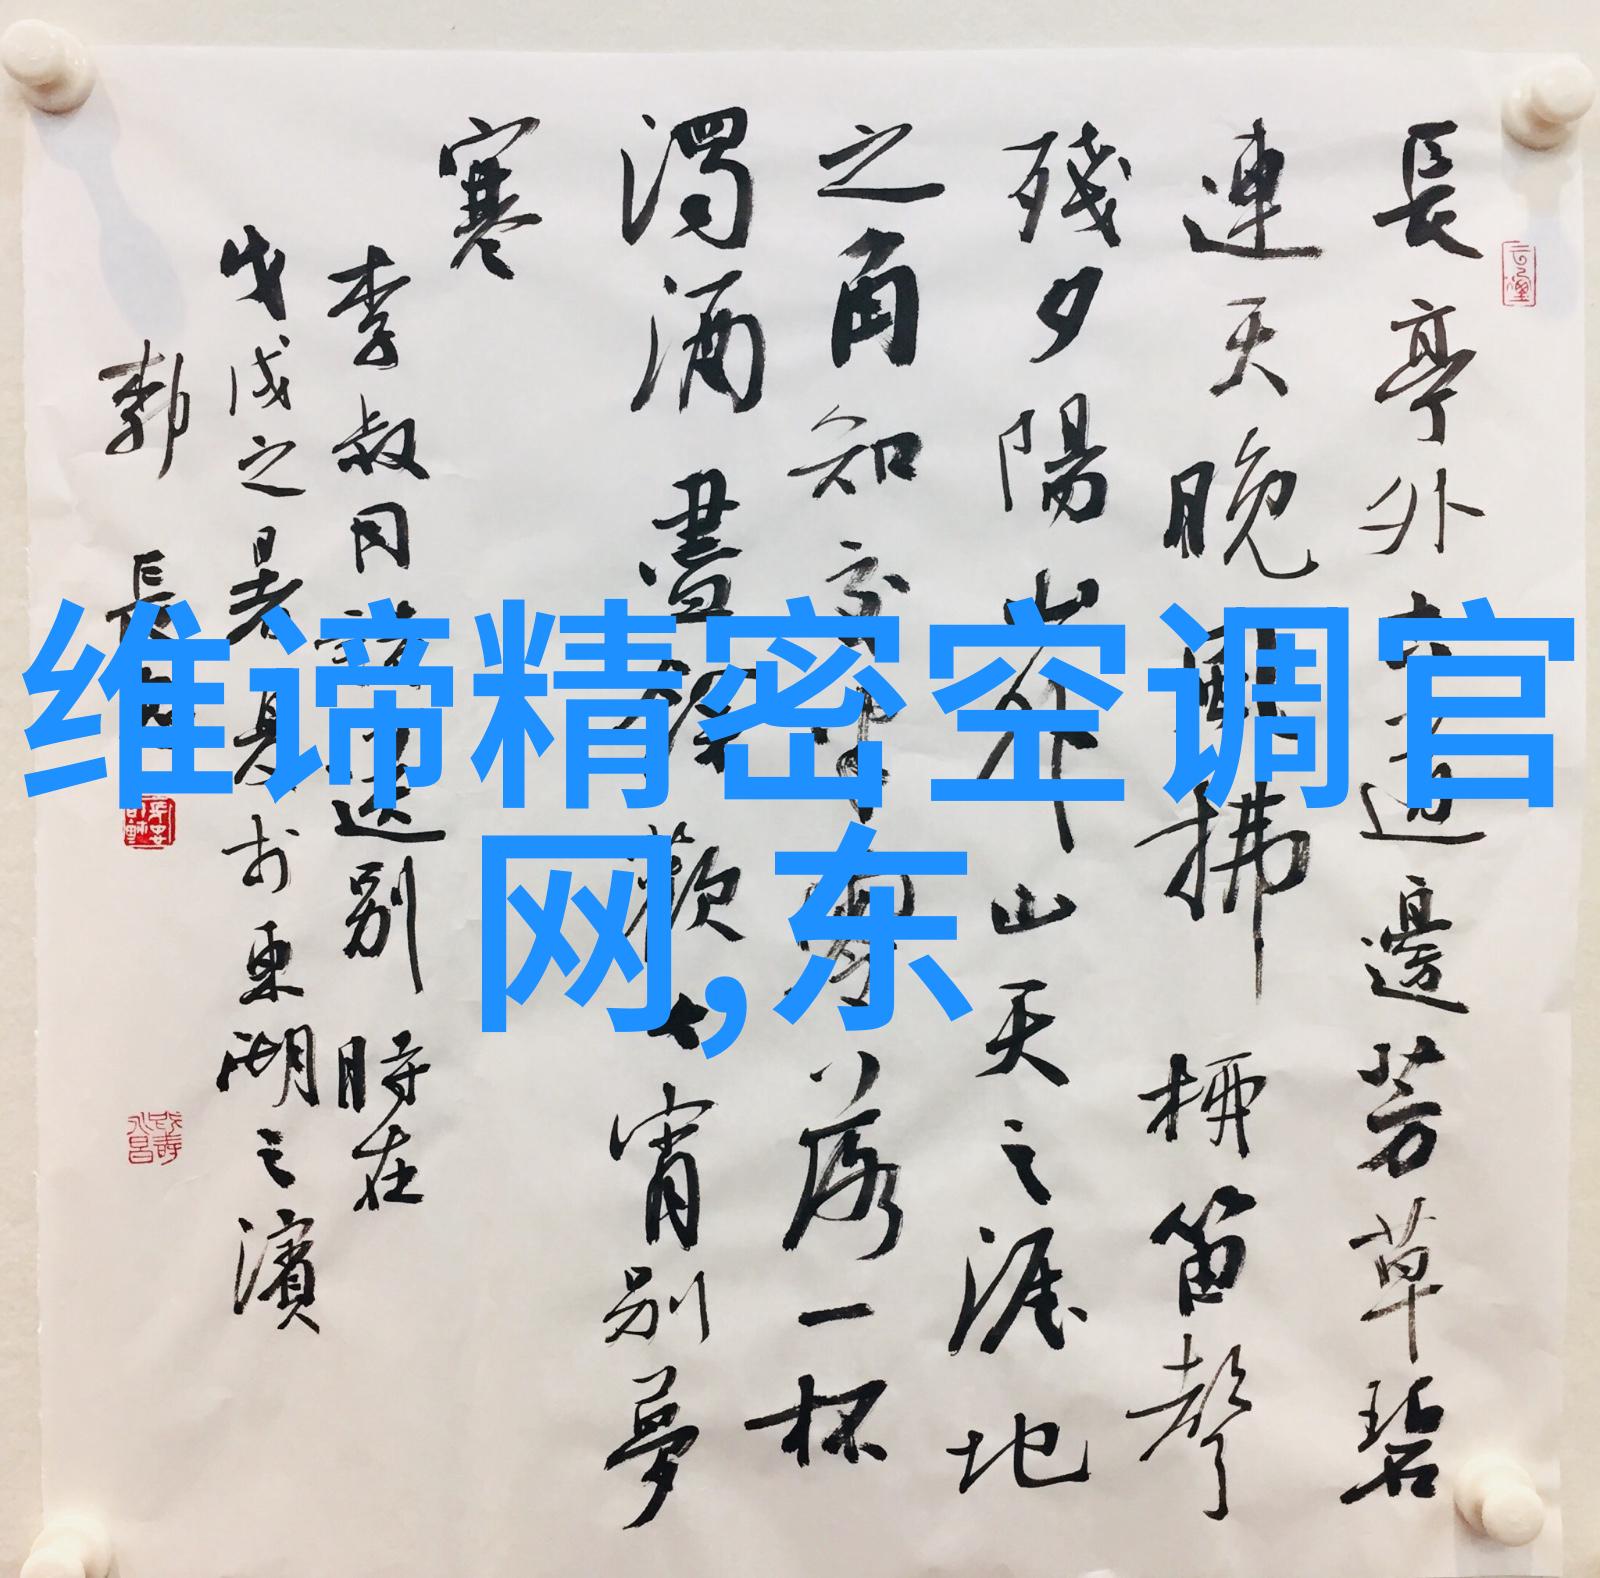 長亭外古道邊芳草碧
連天晚風拂柳笛聲
殘夕陽山外山天之涯地
之角知交半零落一杯
濁酒盡餘歡今宵别夢
寒
李叔同詩送别 時在
戊戌之暑夏於東湖之濱
長
维谛精密空调官
网,东